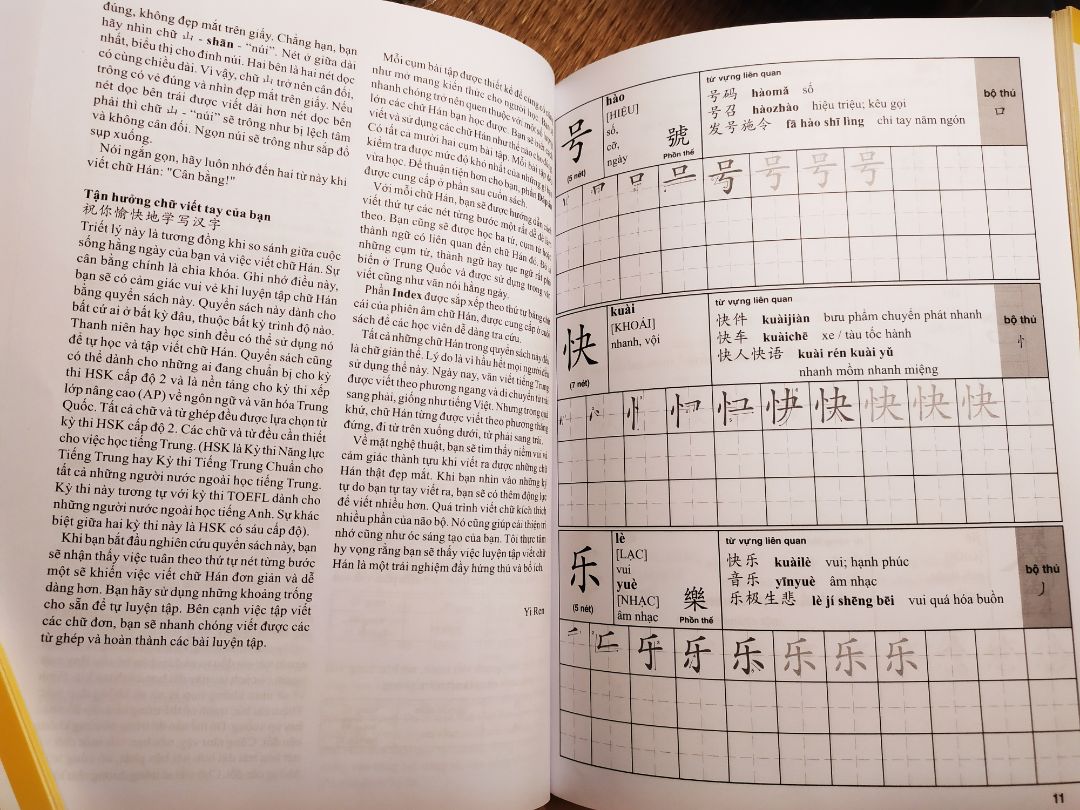 đúng, không đẹp mắt trên giấy. Chẳng hạn, bạn
hãy nhìn chữ 山 - shān - “núi”. Nét ở giữa dài
nhất, biểu thị cho đỉnh núi. Hai bên là hai nét dọc
có cùng chiều dài. Vì vậy, chữ 山 trở nên cân đối,
trông có vẻ đúng và nhìn đẹp mắt trên giấy. Nếu
nét dọc bên trái được viết dài hơn nét dọc bên
phải thì chữ 山 - “núi” sẽ trông như bị lệch tâm
và không cân đối. Ngọn núi sẽ trông như sắp đổ
sụp xuống.
Nói ngắn gọn, hãy luôn nhớ đến hai từ này khi
viết chữ Hán: "Cân bằng!"
Tận hưởng chữ viết tay của bạn
祝你愉快地学写汉字
Triết lý này là tương đồng khi so sánh giữa cuộc
sống hằng ngày của bạn và việc viết chữ Hán. Sự
cân bằng chính là chìa khóa. Ghi nhớ điều này,
bạn sẽ có cảm giác vui vẻ khi luyện tập chữ Hán
bằng quyển sách này. Quyển sách này dành cho
bất cứ ai ở bất kỳ đâu, thuộc bất kỳ trình độ nào.
Thanh niên hay học sinh đều có thể sử dụng nó
để tự học và tập viết chữ Hán. Quyển sách cũng
có thể dành cho những ai đang chuẩn bị cho kỳ
thi HSK cấp độ 2 và là nền tảng cho kỳ thi xếp
lớp nâng cao (AP) về ngôn ngữ và văn hóa Trung
Quốc. Tất cả chữ và từ ghép đều được lựa chọn từ
kỳ thi HSK cấp độ 2. Các chữ và từ đều cần thiết
cho việc học tiếng Trung. (HSK là Kỳ thi Năng lực
Tiếng Trung hay Kỳ thi Tiếng Trung Chuẩn cho
tất cả những người nước ngoài học tiếng Trung.
Kỳ thi này tương tự với kỳ thi TOEFL dành cho
những người nước ngoài học tiếng Anh. Sự khác
biệt giữa hai kỳ thi này là HSK có sáu cấp độ).
Khi bạn bắt đầu nghiên cứu quyển sách này, bạn
sẽ nhận thấy việc tuân theo thứ tự nét từng bước
một sẽ khiến việc viết chữ Hán đơn giản và dễ
dàng hơn. Bạn hãy sử dụng những khoảng trống
cho sẵn để tự luyện tập. Bên cạnh việc tập viết
các chữ đơn, bạn sẽ nhanh chóng viết được các
từ ghép và hoàn thành các bài luyện tập.
Mỗi cụm bài tập được thiết kế để củng cố
như mở mang kiến thức cho người học. Bạn sẽ
nhanh chóng trở nên quen thuộc với một số
lớn các chữ Hán bạn học được. Bạn sẽ biết cách
viết và sử dụng các chữ Hán như thế nào cho
Có tất cả mười hai cụm bài tập. Mỗi bài tập
kiểm tra được mức độ khó nhất của những gì bạn
vừa học. Để thuận tiện hơn cho bạn, phần Đáp án
được cung cấp ở phần sau cuốn sách.
Với mỗi chữ Hán, bạn sẽ được hướng dẫn cách
viết thứ tự các nét từng bước một rất dễ để làm
theo. Bạn cũng sẽ được học ba từ, cụm từ hoặc
thành ngữ có liên quan đến chữ Hán đó. Đó là
những cụm từ, thành ngữ hay tục ngữ rất phổ
biến ở Trung Quốc và được sử dụng trong văn
viết cũng như văn nói hằng ngày.
Phần Index được sắp xếp theo thứ tự bảng chữ
cái của phiên âm chữ Hán, được cung cấp ở cuối
sách để các học viên dễ dàng tra cứu.
Tất cả những chữ Hán trong quyển sách này đều
là chữ giản thể. Lý do là vì hầu hết mọi người đều
sử dụng thể này. Ngày nay, văn viết tiếng Trung
được viết theo phương ngang và di chuyển từ trái
sang phải, giống như tiếng Việt. Nhưng trong quá
khứ, chữ Hán từng được viết theo phương thẳng
đứng, đi từ trên xuống dưới, từ phải sang trái.
Về mặt nghệ thuật, bạn sẽ tìm thấy niềm vui và
cảm giác thành tựu khi viết ra được những chữ
Hán thật đẹp mắt. Khi bạn nhìn vào những ký
tự do bạn tự tay viết ra, bạn sẽ có thêm động lực
để viết nhiều hơn. Quá trình viết chữ kích thích
nhiều phần của não bộ. Nó cũng giúp cải thiện trí
nhớ cũng như óc sáng tạo của bạn. Tôi thực tâm
hy vọng rằng bạn sẽ thấy việc luyện tập viết chữ
Hán là một trải nghiệm đầy hứng thú và bổ ích.
Yi Ren
号
(5 nét)
hào
[HIỆU]
số,
cỡ,
ngày
號
Phồn thể
từ vựng liên quan
号码 hàomǎ số
号召 hàozhào hiệu triệu; kêu gọi
发号施令 fā hào shī lìng chỉ tay năm ngón
bộ thủ
口
号 号 号 号
快
(7 nét)
kuài
[KHOÁI]
nhanh, vội
từ vựng liên quan
快件 kuàijiàn bưu phẩm chuyển phát nhanh
快车 kuàichē xe / tàu tốc hành
快人快语 kuài rén kuài yǔ
nhanh mồm nhanh miệng
bộ thủ
忄
快 快 快 快
乐
(5 nét)
lè
[LẠC]
vui
yuè
[NHẠC]
âm nhạc
樂
Phồn thể
từ vựng liên quan
快乐 kuàilè vui; hạnh phúc
音乐 yīnyuè âm nhạc
乐极生悲 lè jí shēng bēi vui quá hóa buồn
bộ thủ
丿
乐 乐 乐 乐
11